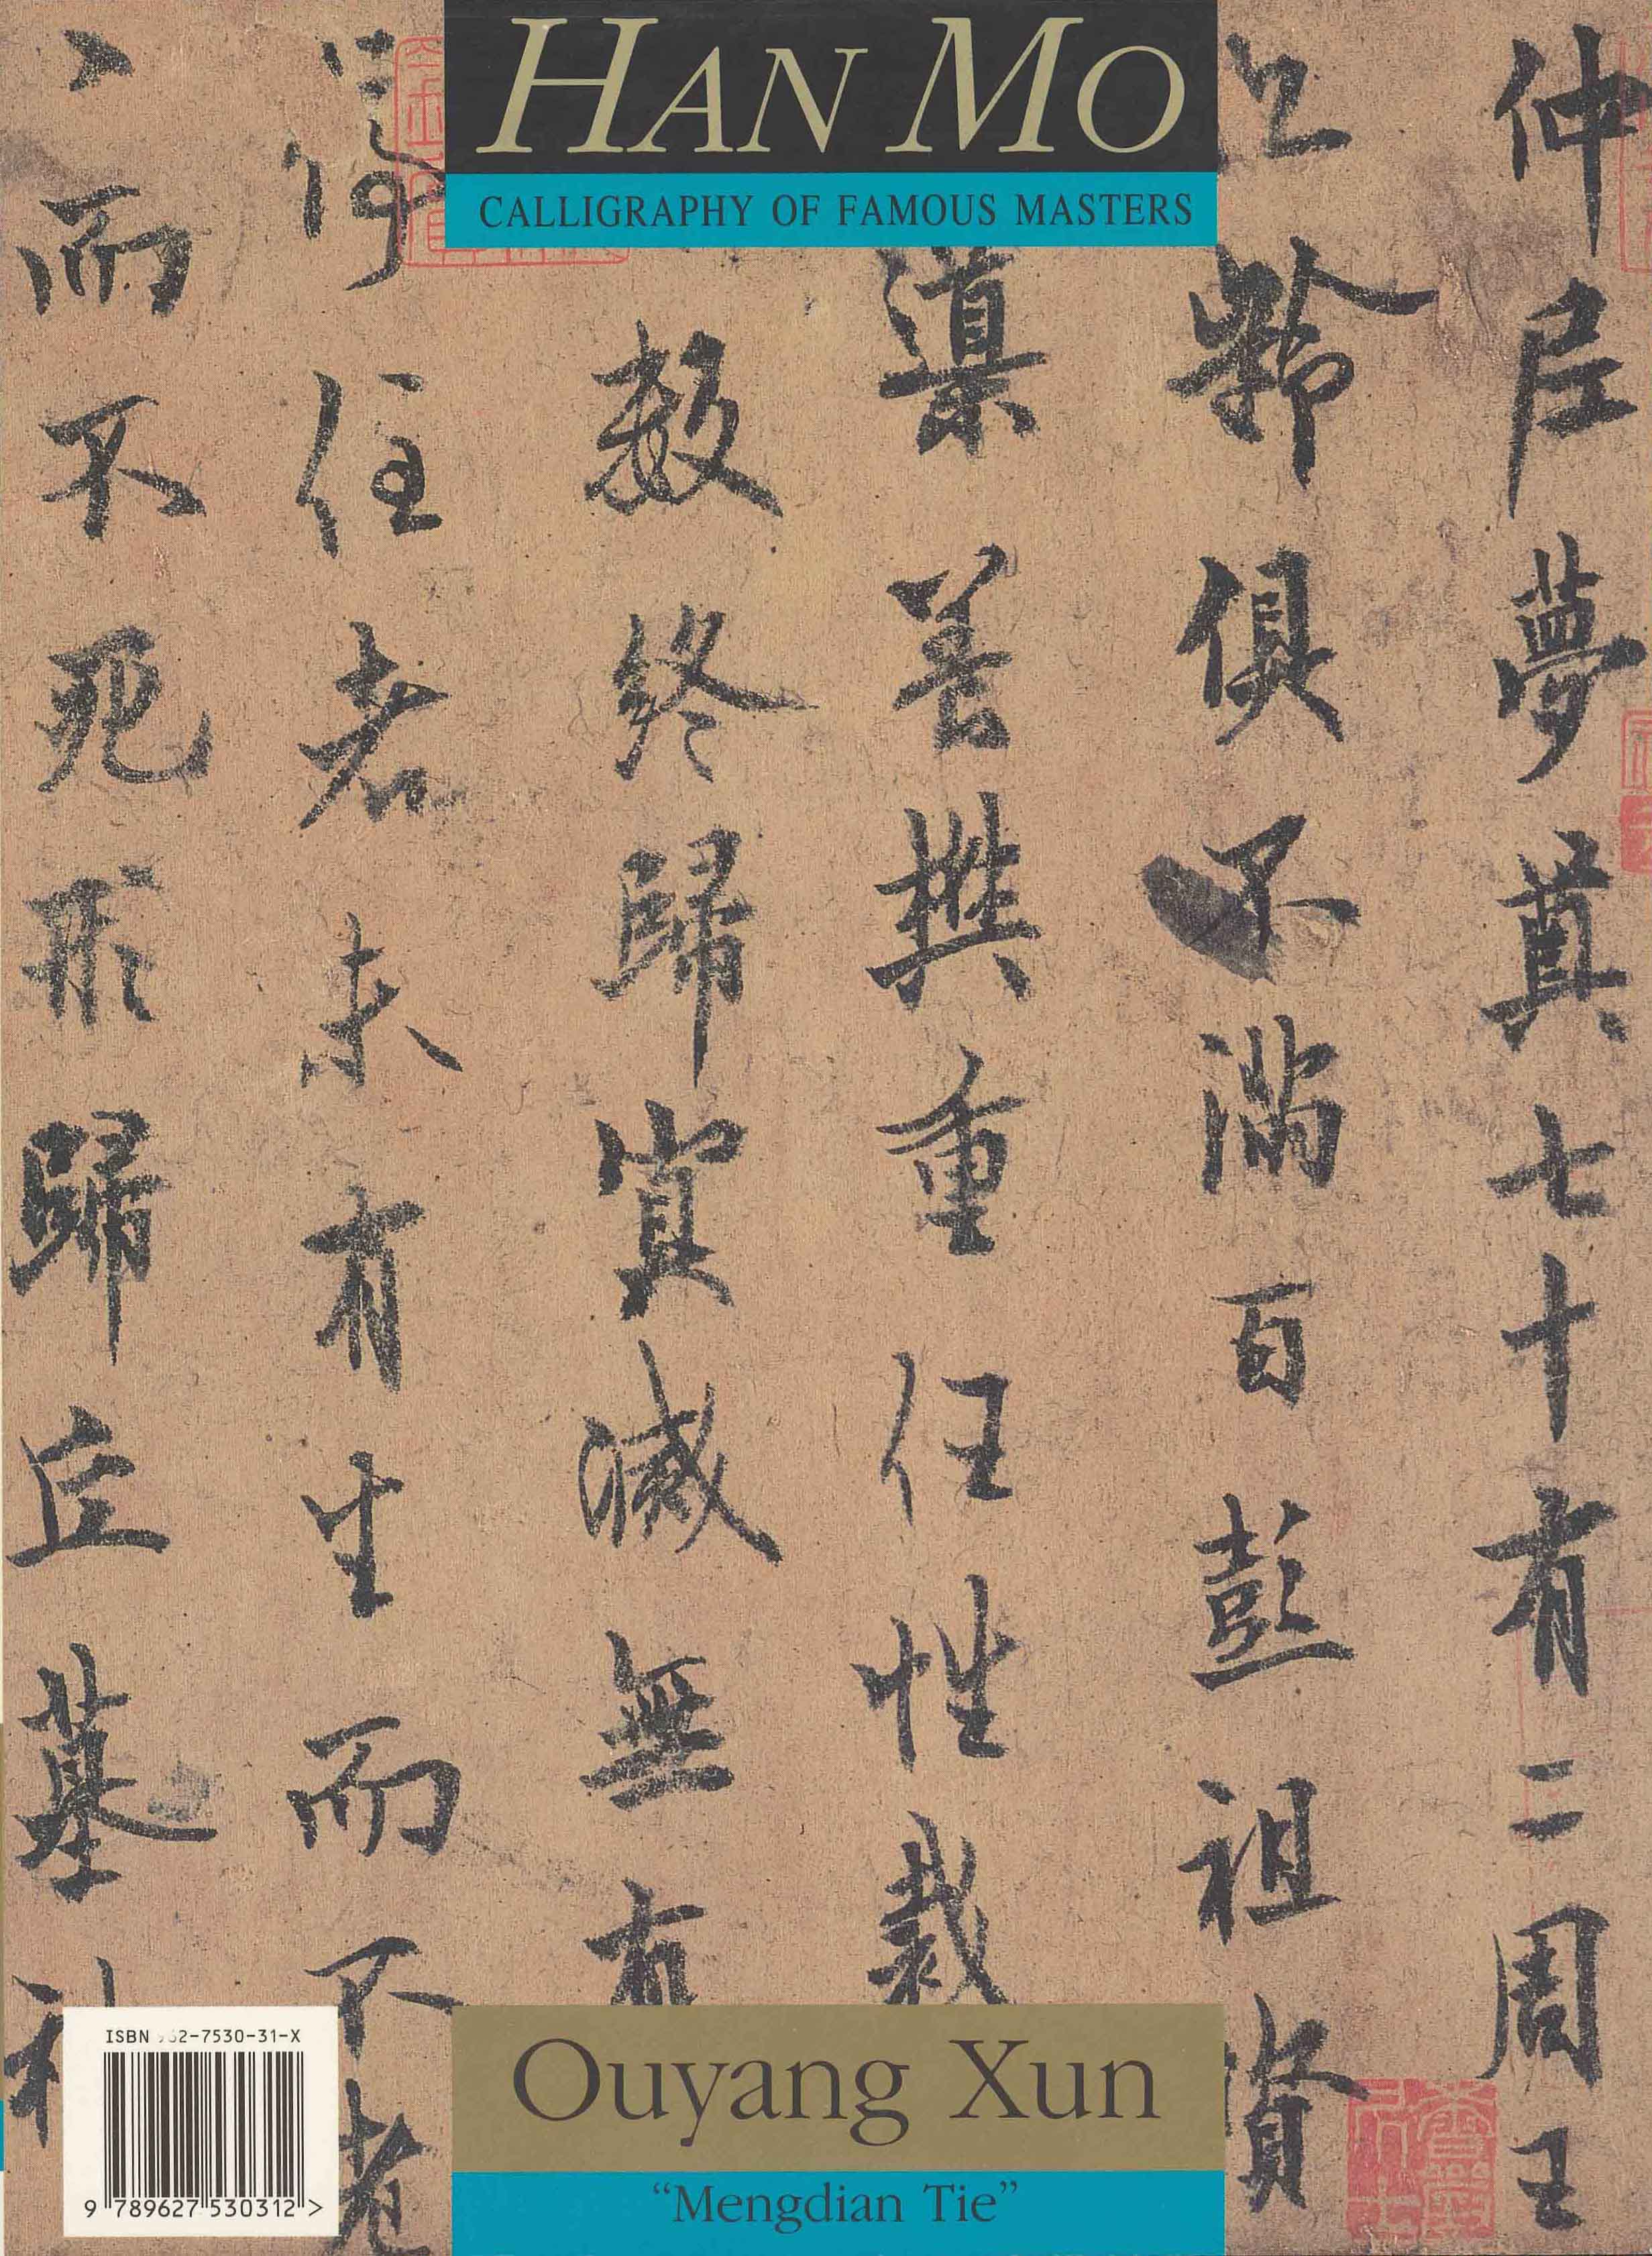 HAN MO
CALLIGRAPHY OF FAMOUS MASTERS
仲尼夢奠七十有二周王
九齡俱不滿百彭祖資
導養樊重任性裁
數終歸冥滅無有
得住者未有生而不老
〻而不死形歸丘墓神
Ouyang Xun
“Mengdian Tie”
ISBN 962-7530-31-X
9 789627 530312 >